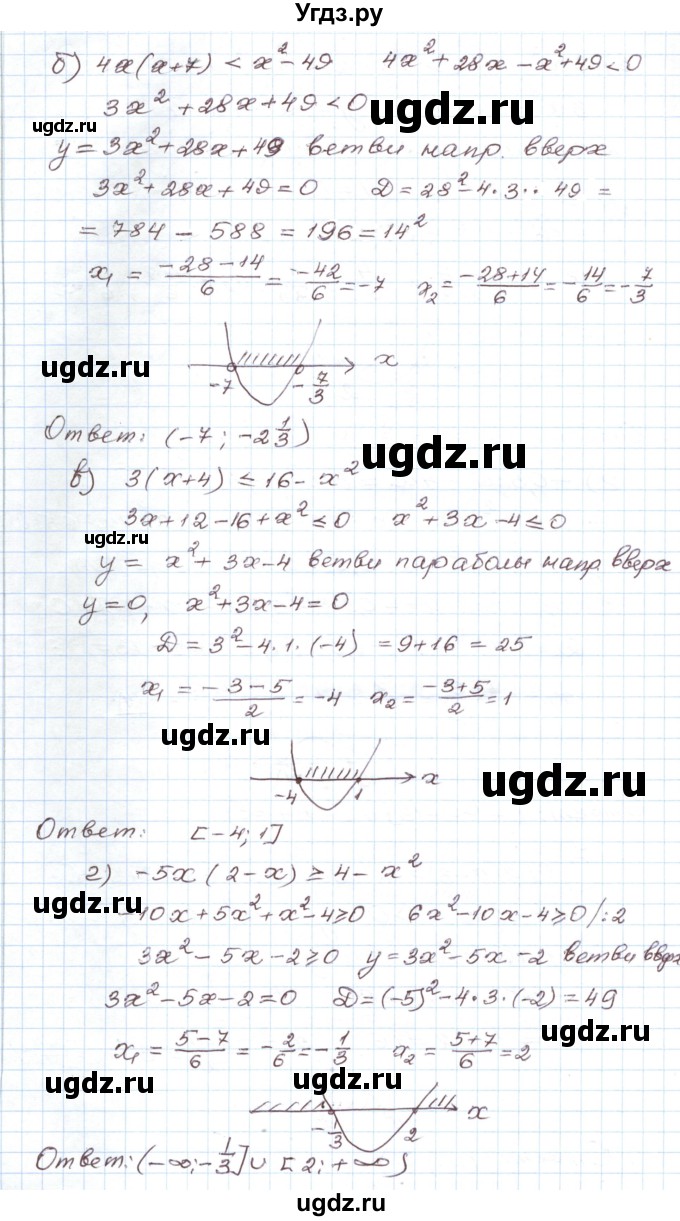 Угдз.ру
б) 4x(x+7) < x² - 49   4x² + 28x - x² + 49 < 0
3x² + 28x + 49 < 0
ugdz.ru
y = 3x² + 28x + 49 ветви напр. вверх
3x² + 28x + 49 = 0   D = 28² - 4·3·· 49 =
ugdz.ru
= 784 - 588 = 196 = 14²
x₁ = (-28-14)/6 = -42/6 = -7   x₂ = (-28+14)/6 = -14/6 = -7/3
ugdz.ru
x
-7   -7/3
Ответ: (-7; -2 1/3)
ugdz.ru
в) 3(x+4) ≤ 16 - x²
3x + 12 - 16 + x² ≤ 0   x² + 3x - 4 ≤ 0
ugdz.ru
y = x² + 3x - 4 ветви параболы напр вверх
y = 0, x² + 3x - 4 = 0
D = 3² - 4·1·(-4) = 9 + 16 = 25
x₁ = (-3-5)/2 = -4   x₂ = (-3+5)/2 = 1
ugdz.ru
ugdz.ru
x
-4   1
Ответ: [-4; 1]
г) -5x(2-x) ≥ 4 - x²
ugdz.ru
-10x + 5x² + x² - 4 ≥ 0   6x² - 10x - 4 ≥ 0 /:2
3x² - 5x - 2 ≥ 0   y = 3x² - 5x - 2 ветви вверх
3x² - 5x - 2 = 0   D = (-5)² - 4·3·(-2) = 49
ugdz.ru
x₁ = (5-7)/6 = -2/6 = -1/3   x₂ = (5+7)/6 = 2
ugdz.ru
ugdz.ru
x
-1/3   2
Ответ: (-∞; -1/3] ∪ [2; +∞)
ugdz.ru